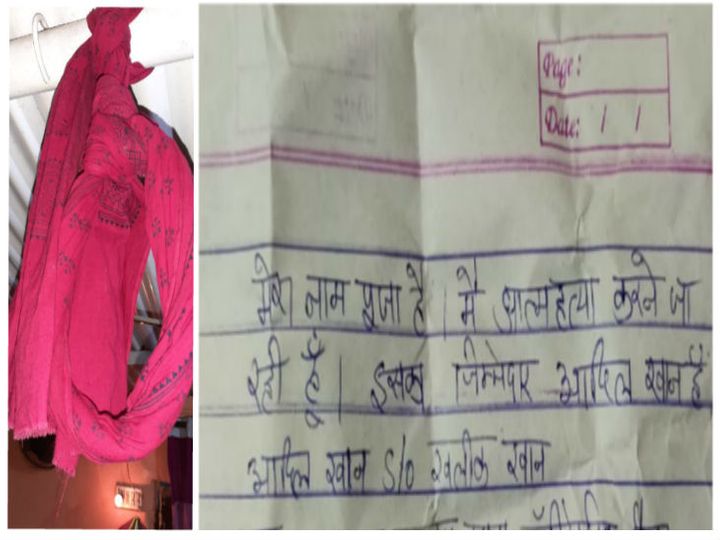 Page:
Date: / /
मेरा नाम पूजा है। मै आत्महत्या करने जा
रही हूँ। इसका जिम्मेदार आदिल खान हैं
आदिल खान S/o खलील खान